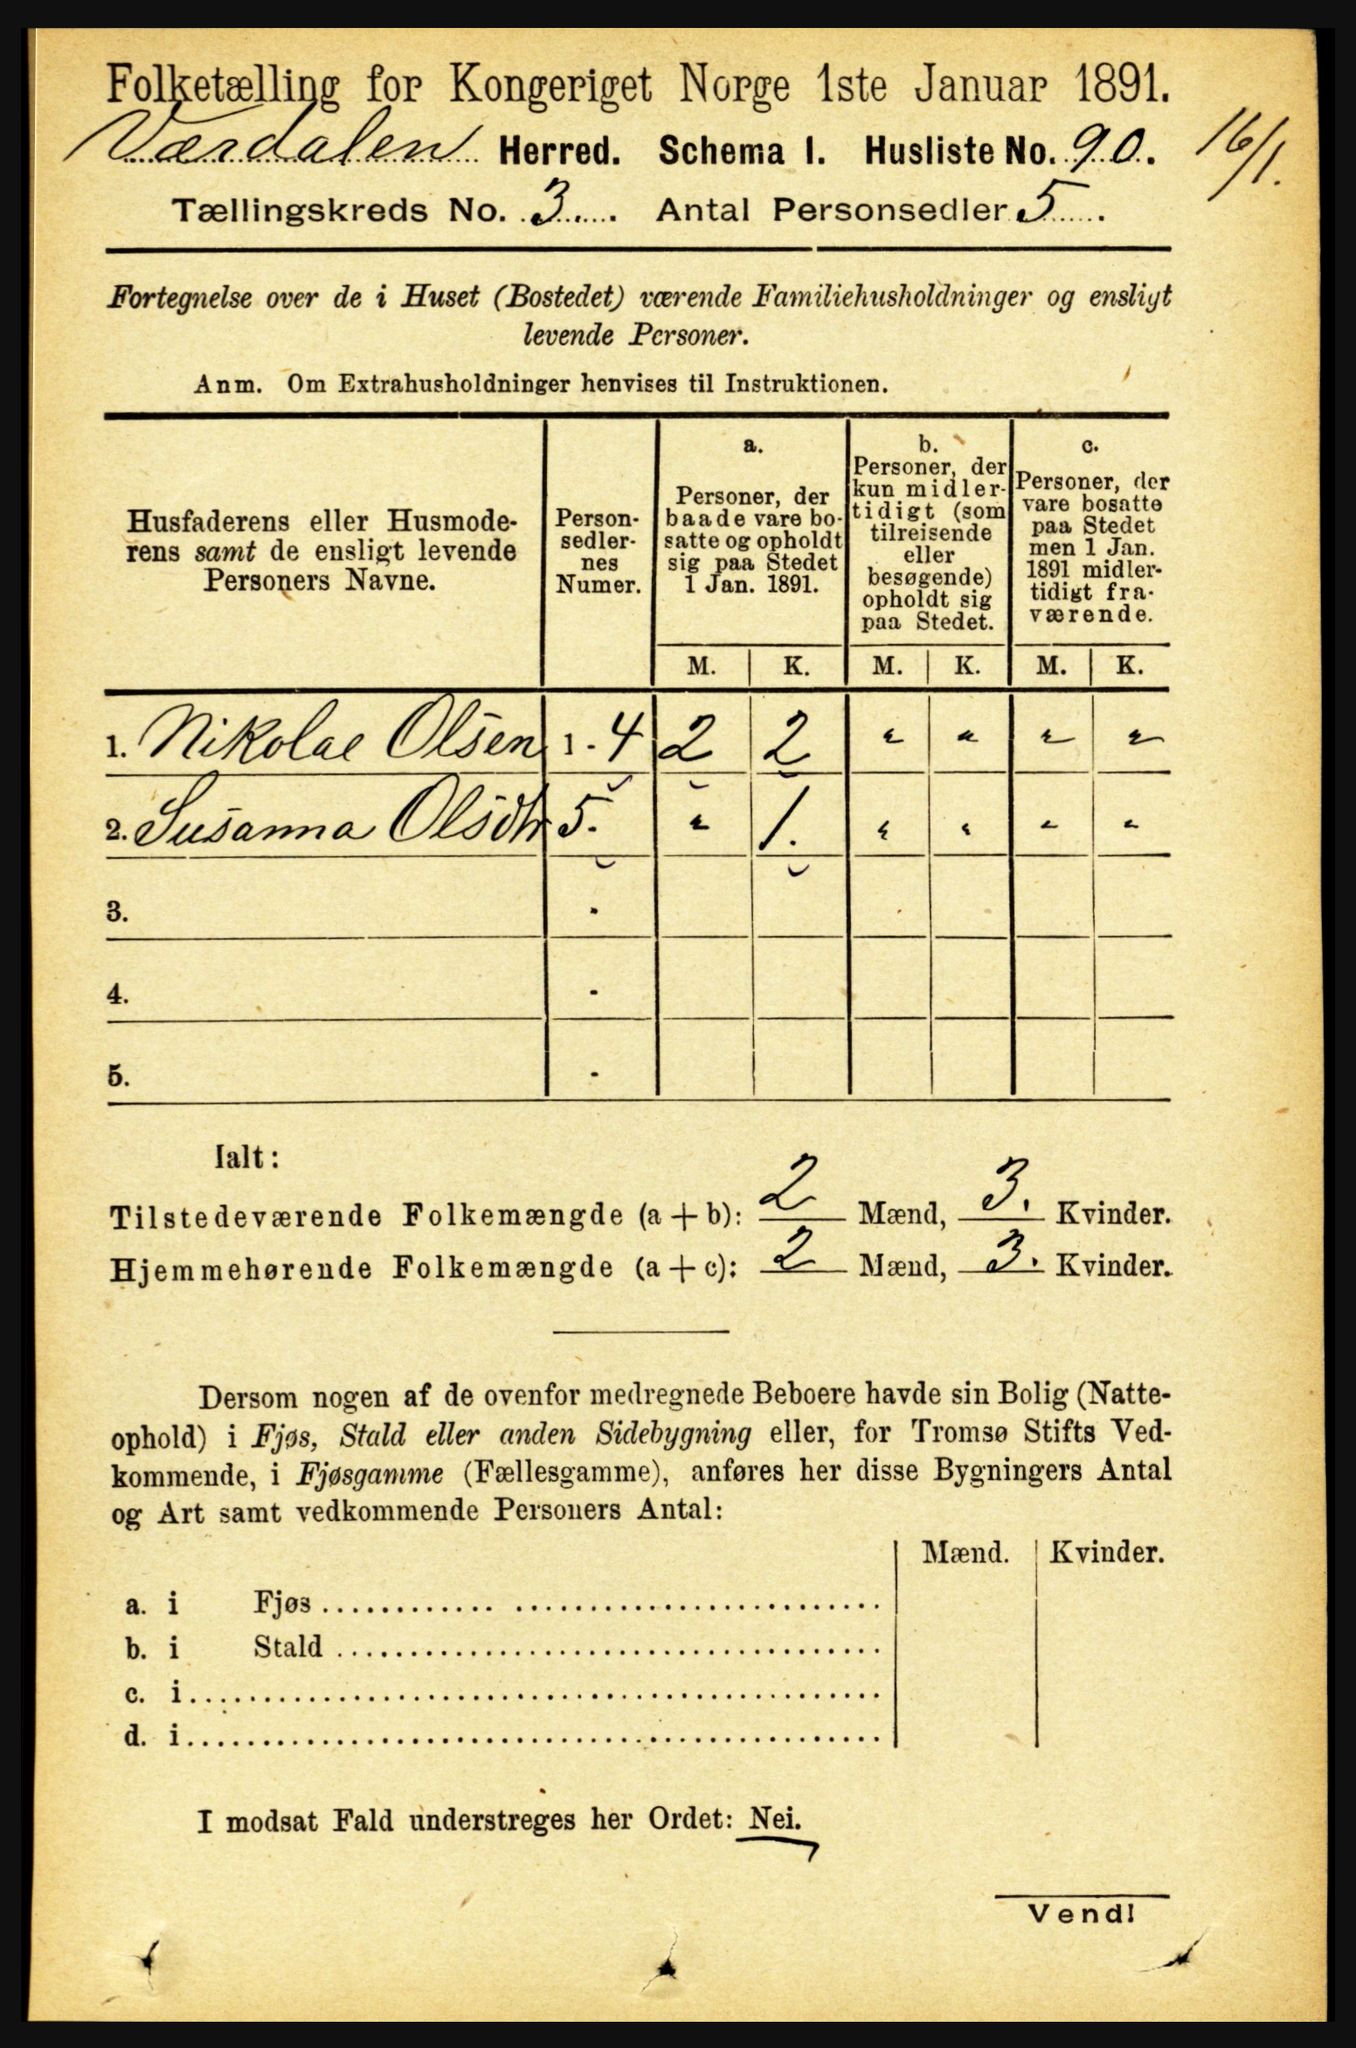 Folketælling for Kongeriget Norge 1ste Januar 1891.
Værdalen Herred. Schema I. Husliste No. 90.
16/1.
Tællingskreds No. 3. Antal Personsedler 5
Fortegnelse over de i Huset (Bostedet) værende Familiehusholdninger og ensligt
levende Personer.
Anm. Om Extrahusholdninger henvises til Instruktionen.
Husfaderens eller Husmode-
rens samt de ensligt levende
Personers Navne.
Person-
sedler-
nes
Numer.
a.
Personer, der
baade vare bo-
satte og opholdt
sig paa Stedet
1 Jan. 1891.
b.
Personer, der
kun midler-
tidigt (som
tilreisende
eller
besøgende)
opholdt sig
paa Stedet.
c.
Personer, der
vare bosatte
paa Stedet
men 1 Jan.
1891 midler-
tidigt fra-
værende.
M. K. M. K. M. K.
1. Nikolae Olsen 1 - 4 2 2 " " " "
2. Susanna Olsdtr 5. " 1. " " " "
3. -
4. -
5. -
Ialt:
Tilstedeværende Folkemængde (a + b): 2 Mænd, 3. Kvinder.
Hjemmehørende Folkemængde (a + c): 2 Mænd, 3. Kvinder.
Dersom nogen af de ovenfor medregnede Beboere havde sin Bolig (Natte-
ophold) i Fjøs, Stald eller anden Sidebygning eller, for Tromsø Stifts Ved-
kommende, i Fjøsgamme (Fællesgamme), anføres her disse Bygningers Antal
og Art samt vedkommende Personers Antal:
Mænd. Kvinder.
a. i Fjøs
b. i Stald
c. i
d. i
I modsat Fald understreges her Ordet: Nei.
Vend!